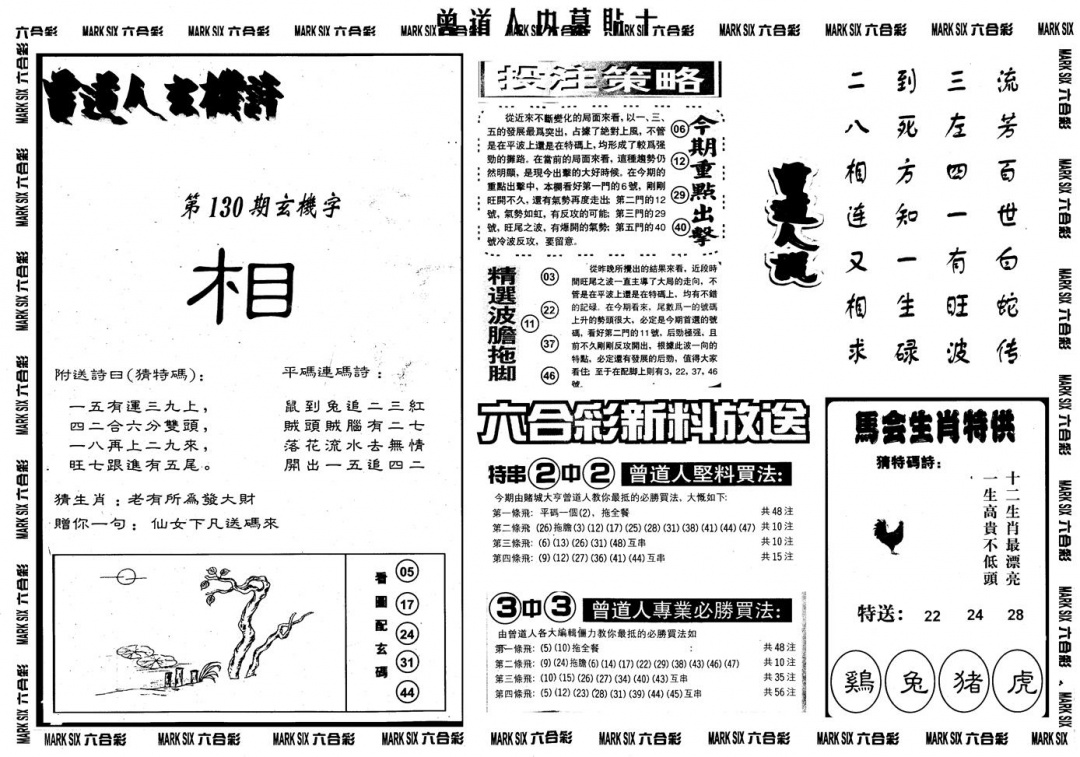 曾道人内幕貼士
六合彩 MARK SIX 六合彩 MARK SIX 六合彩 MARK SIX 六合彩 MARK SIX 六合彩 MARK SIX 六合彩 MARK SIX 六合彩 MARK SIX 六合彩 MARK SIX 六合彩 MARK SIX 六合彩 MARK SIX
曾道人玄機詩
第130期玄機字
相
附送詩曰(猜特碼)：
一五有運三九上，
四二合六分雙頭，
一八再上二九來，
旺七跟進有五尾。
平碼連碼詩：
鼠到兔追二三紅
賊頭賊腦有二七
落花流水去無情
開出一五追四二
猜生肖：老有所為發大財
贈你一句：仙女下凡送碼來
看圖配玄碼
05
17
24
31
44
投注策略
從近來不斷變化的局面來看，以一、三、
五的發展最爲突出，占據了絶對上風，不管
是在平波上還是在特碼上，均形成了較爲强
勁的舞路。在當前的局面來看，這種趨勢仍
然明顯，是現今出擊的大好時候。在今期的
重點出擊中，本欄看好第一門的6號，剛剛
旺開不久，還有氣勢再度走出；第二門的12
號，氣勢如虹，有反攻的可能；第三門的29
號，旺尾之波，有爆開的氣勢；第五門的40
號冷波反攻，要留意。
今期重點出擊
06
12
29
40
精選波膽拖脚
11
03
22
37
46
從昨晚所攪出的結果來看，近段時
間旺尾之波一直主導了大局的走向，不
管是在平波上還是在特碼上，均有不錯
的記録。在今期看來，尾數爲一的號碼
上升的勢頭很大，必定是今期首選的號
碼，看好第二門的11號，后勁極强，且
前不久剛剛反攻開出，根據此波一向的
特點，必定還有發展的后勁，值得大家
看住；至于在配脚上則有3，22，37，46
號。
六合彩新料放送
特串2中2 曾道人堅料買法：
今期由賭城大亨曾道人教你最抵的必勝買法，大慨如下：
第一條飛：平碼一個(2)，拖全餐 共48注
第二條飛 (26)拖膽(3)(12)(17)(25)(28)(31)(38)(41)(44)(47) 共10注
第三條飛：(6)(13)(26)(31)(48)互串 共10注
第四條飛：(9)(12)(27)(36)(41)(44)互串 共15注
3中3 曾道人專業必勝買法：
由曾道人各大編輯儷力教你最抵的必勝買法如
第一條飛：(5)(10)拖全餐 ： 共48注
第二條飛：(9)(24)拖膽(6)(14)(17)(22)(29)(38)(43)(46)(47) 共10注
第三條飛：(10)(15)(26)(27)(34)(40)(43)互串 共35注
第四條飛：(5)(12)(23)(28)(31)(39)(44)(45)互串 共56注
曾道人説
流芳百世白蛇传
三左四一有旺波
到死方知一生碌
二八相连又相求
馬会生肖特供
猜特碼詩：
十二生肖最漂亮
一生高貴不低頭
特送：22 24 28
鷄 兔 猪 虎
MARK SIX 六合彩 MARK SIX 六合彩 MARK SIX 六合彩 MARK SIX 六合彩 MARK SIX 六合彩 MARK SIX 六合彩 MARK SIX 六合彩 MARK SIX 六合彩 MARK SIX 六合彩 MARK SIX